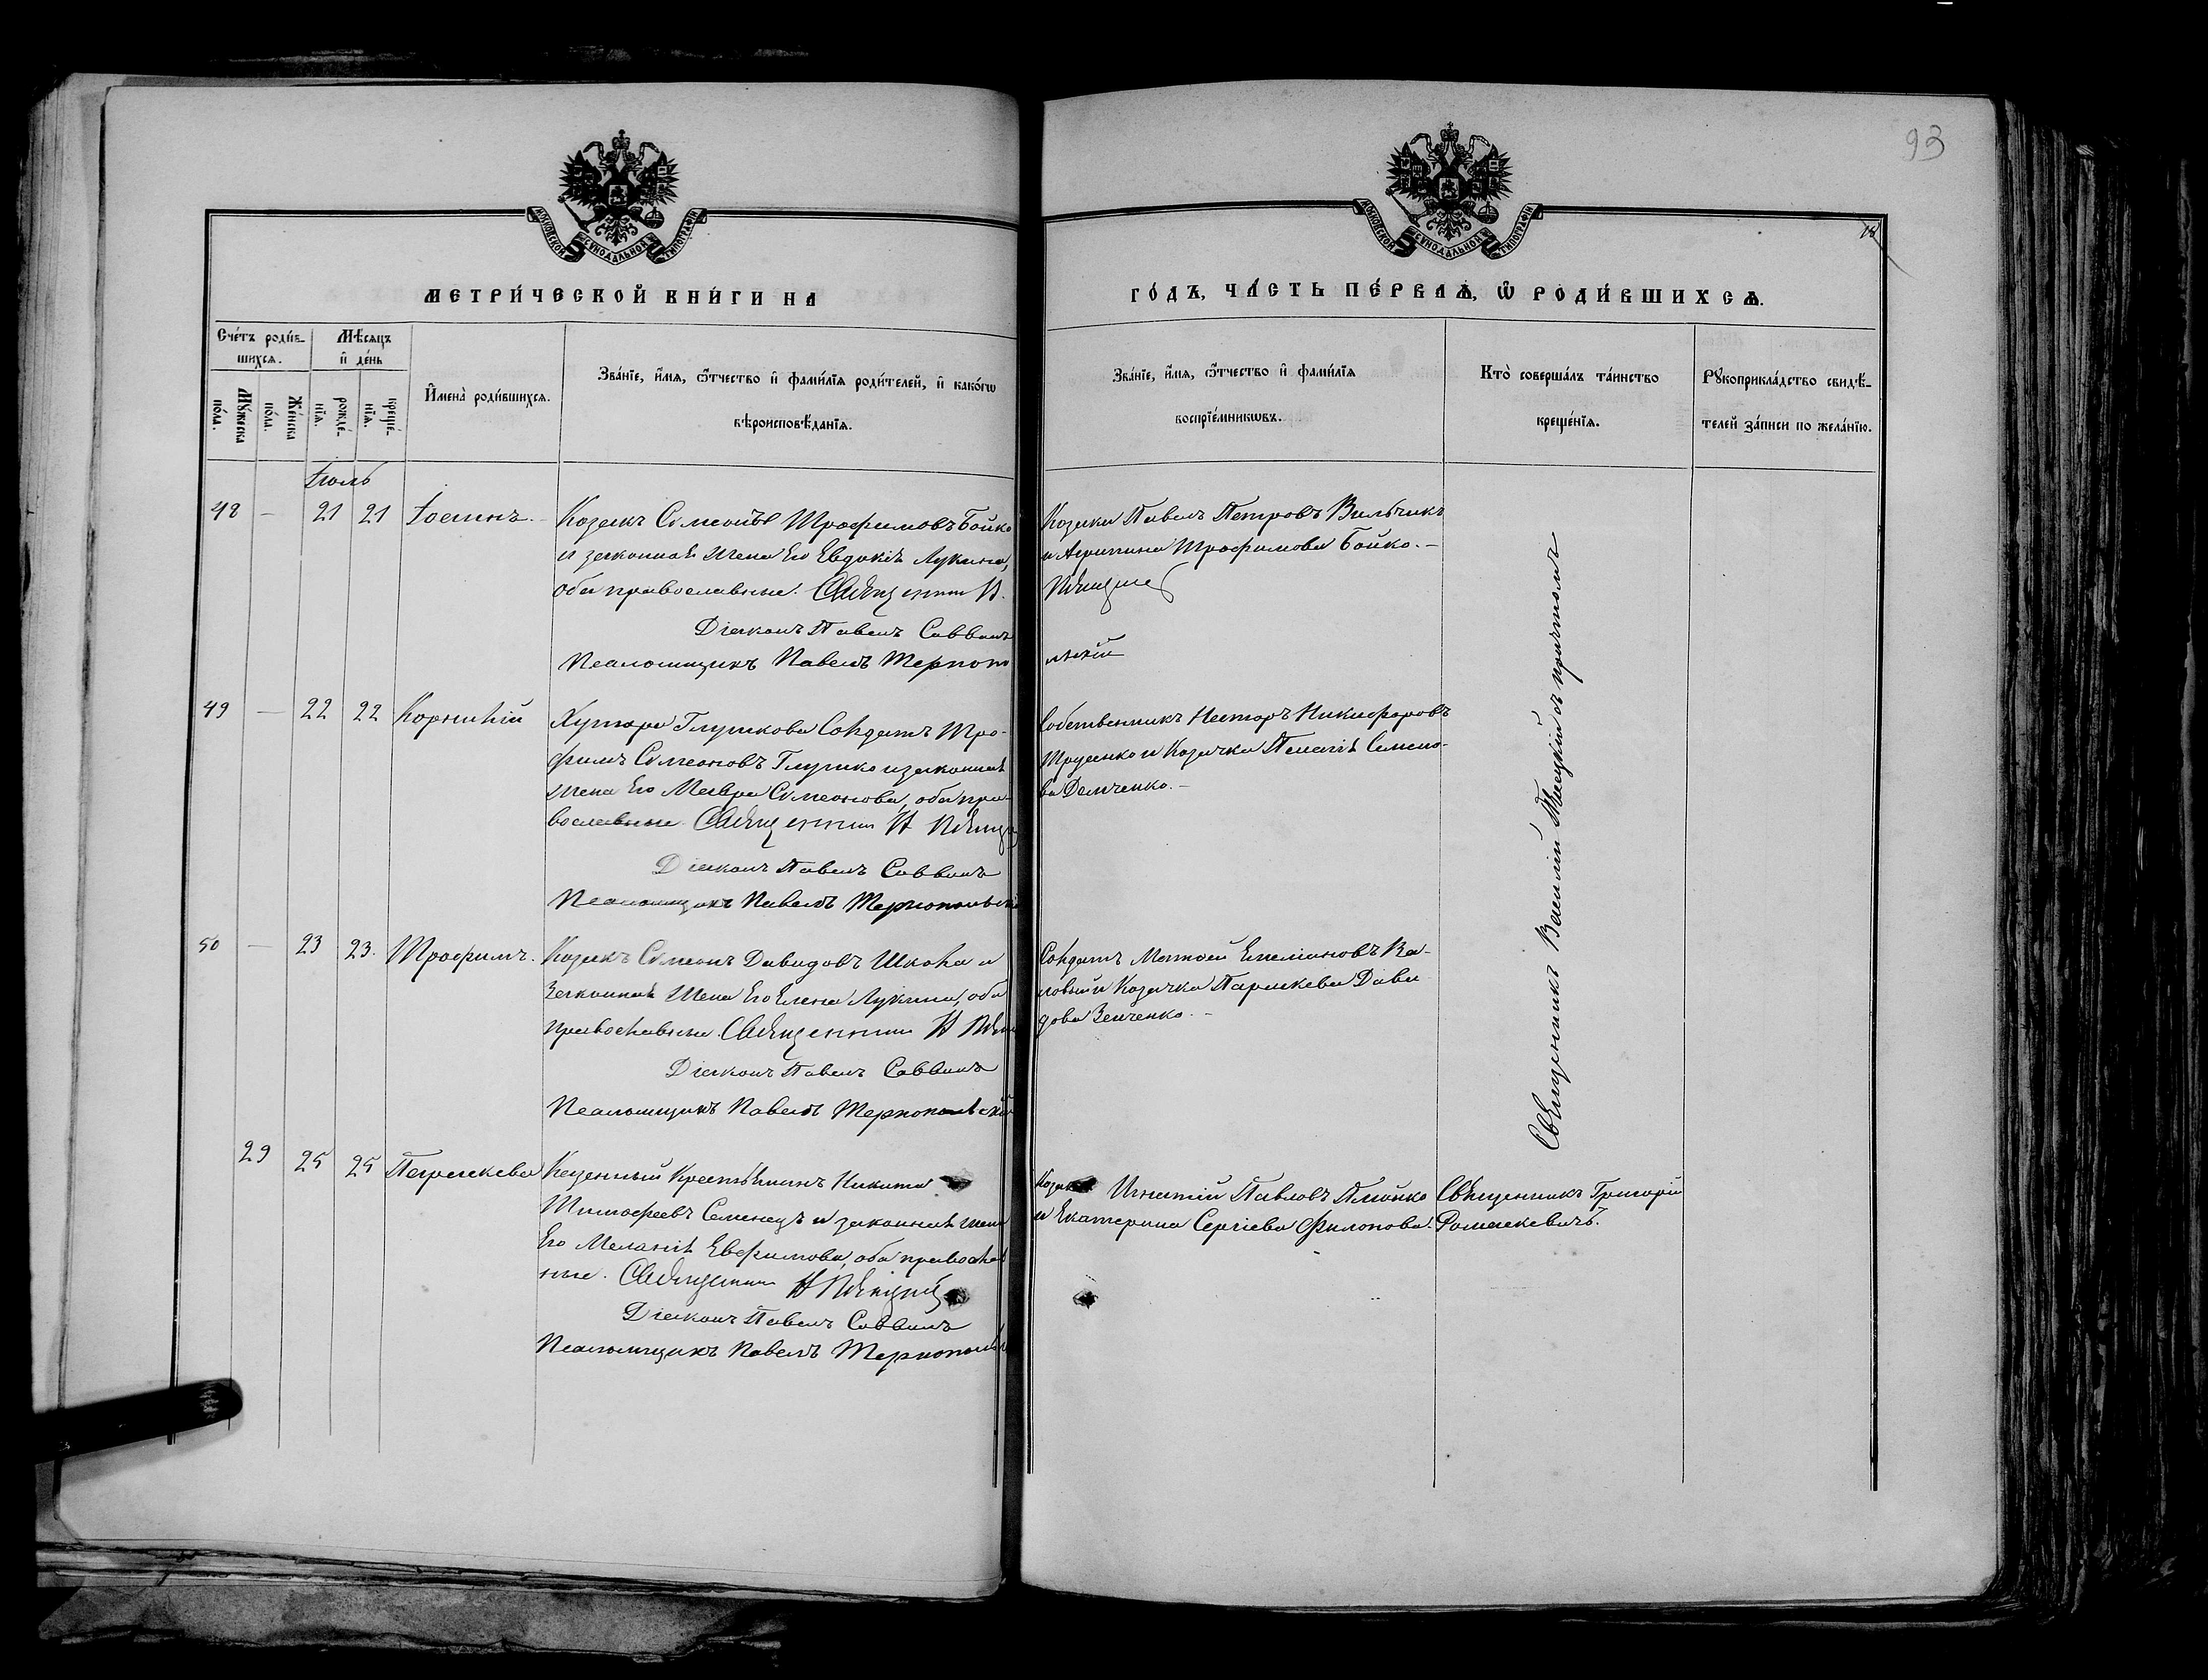 93
МОСКОВСКОЙ СѴНОДАЛЬНОЙ ТИПОГРАФІИ
МОСКОВСКОЙ СѴНОДАЛЬНОЙ ТИПОГРАФІИ
МЕТРИ́ЧЕСКОЙ КНИ́ГИ НА
ГО́ДЪ, ЧА́СТЬ ПЕ́РВАѦ, Ѽ РОДИ́ВШИХСѦ.
Сче́тъ роди́в-
шихсѧ.
Мѣ́сѧцъ
и҆ де́нь
Мꙋ́жеска по́ла.
Же́нска по́ла.
рожде́-нїѧ.
креще́-нїѧ.
И҆мена̀ роди́вшихсѧ.
Зва́нїе, и҆́мѧ, ѻ҆́тчество и҆ фами́лїѧ роди́телей, и҆ како́гѡ
вѣроисповѣ́данїѧ.
Зва́нїе, и҆́мѧ, ѻ҆́тчество и҆ фами́лїѧ
воспрїе́мникѡвъ.
Кто̀ соверша́лъ та́инство
креще́нїѧ.
Рꙋкоприкла́дство свидѣ́-
телей за́писи по жела́нїю.
Іюль
48 — 21 21 Іоаннъ. Козакъ Симеонъ Трофимовъ Бойко
и законная жена Его Евдокія Лукина,
оба православные. Священник Н.
Діаконъ Павелъ Саввинъ
Псаломщикъ Павелъ Тернопо
Козаки Павелъ Петровъ Вильчикъ
и Агрипина Трофимова Бойко. —
льскій
49 — 22 22 Корнилій Хутора Глушкова Солдатъ Тро-
фимъ Симеоновъ Глушко и законная
жена Его Мавра Симеонова, оба пра-
вославные. Священник Н
Діаконъ Павелъ Саввинъ
Псаломщикъ Павелъ Тернопольскій
Собственникъ Несторъ Никифоровъ
Труенко и Козачка Пелагія Симео-
ва Демченко. —
50 — 23 23. Трофимъ. Козакъ Симеонъ Давидовъ Школа и
Законная Жена Его Елена Лукина, оба
православные. Священник Н
Діаконъ Павелъ Саввинъ
Псаломщикъ Павелъ Тернопольскій
Солдатъ Матѳей Емеліановъ Ва-
ловый и Козачка Параскева Дави-
дова Зенченко. —
Священникъ Василій с причтомъ
29 25 25 Параскева Казенный Крестьянинъ Никита
Тимофеевъ Семенецъ и законная жена
Его Меланія Евфимова, оба православ
ные. Священник Н
Діаконъ Павелъ Саввинъ
Псаломщикъ Павелъ Тернополь
Игнатій Павловъ
и Екатерина Сергіева Филонова.
Священникъ Григорій
Ромаскевичъ.